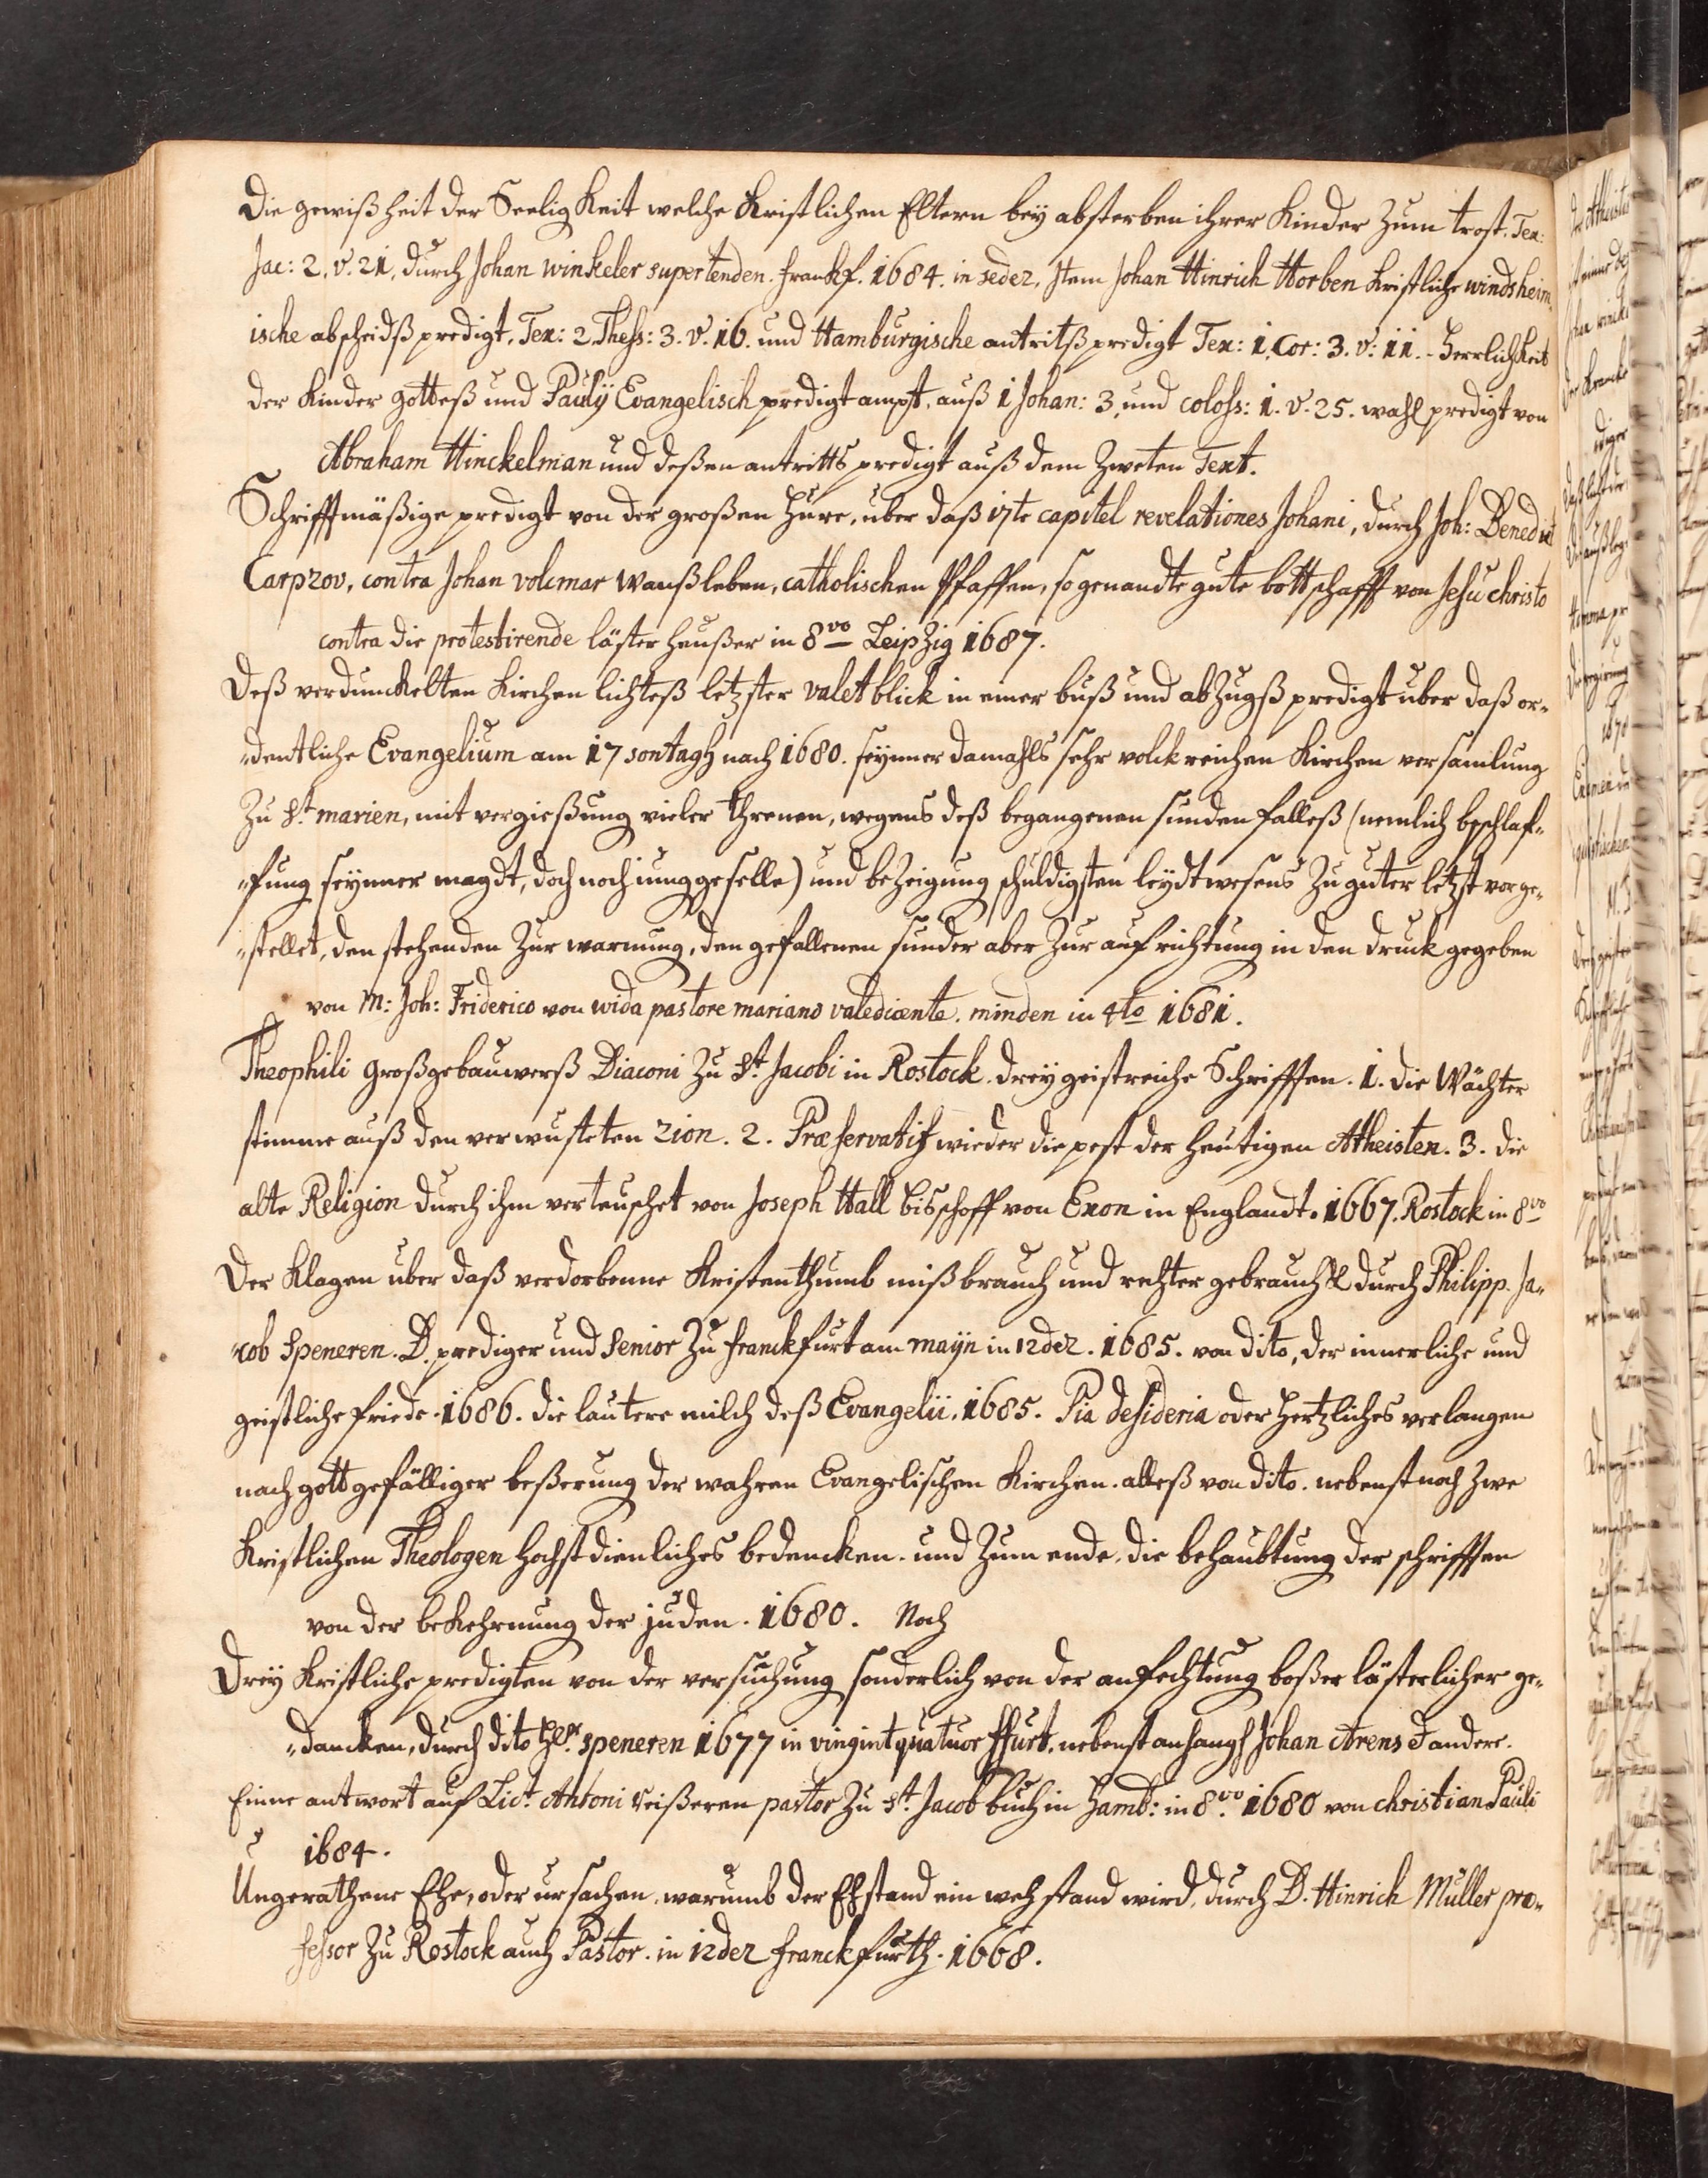 Die gewißheit der Seeligkeit welche Kristlichen Eltern bey absterben ihrer Kinder zum trost. Tex:
Jac: 2. v. 21. durch Johan winkeler supertenden. franckf. 1684. in sedez. Item Johan Hinrich Horben Kristliche windsheim
ische abscheidß predigt. Tex: 2. Thess: 3. v. 16. und Hamburgische antritß predigt Tex: 1. Cor: 3. v: 11. - Herrlichkeit
der Kinder gotteß und Paulÿ Evangelisch predigtampt. auß 1 Johan: 3. und coloss: 1. v. 25. wahl predigt von
Abraham Hinckelman und deßen antritts predigt auß dem zweten Text.
Schrifftmäßige predigt von der großen Hure, uber daß 17te capitel revelationes Johani, durch Joh: Benedict
Carpzov, contra Johan volcmar Waußleben, catholischen Pfaffen, so genandte gute bottschafft von Jesu christo
contra die protestirende lästerheußer in 8vo Leipzig 1687.
Deß verdunckelten Kirchen lichteß letzster valetblick in einer buß und abzugß predigt uber daß or-
dentliche Evangelium am 17 sontagh nach 1680. seynner damahls sehr volckreichen Kirchen versamlung
zu St. marien, mit vergießung vieler threnen, wegens deß begangenen sunden falleß (nemlich beschlaf-
fung seynner magdt, doch noch iunggeselle) und bezeigung schuldigsten leydtwesens zu guter letzst vorge-
stellet, den stehenden zur warnung, den gefallenen sunder aber zur auffrichtung in den druck gegeben
von M: Joh: Friderico von wida pastore mariano valedicente. minden in 4to 1681.
Theophili großgebauwerß Diaconi zu St. Jacobi in Rostock. drey geistreiche Schrifften. 1. die Wächter
stimme auß den verwusteten zion. 2. Præservatif wieder die pest der heutigen Atheisten. 3. die
alte Religion durch ihm verteuschet von Joseph Hall bisschoff von Exon in Englandt. 1667. Rostock in 8vo
Der Klagen uber daß verdorbenne Kristenthumb mißbrauch und rechter gebrauch durch Philipp. Ja-
cob Speneren. D. prediger und Senior zu franckfurt am mayn in 12dez. 1685. von dito, der innerliche und
geistliche friede. 1686. die lautere milch deß Evangelii. 1685. Pia desideria oder Hertzliches verlangen
nach gottgefälliger beßerung der wahren Evangelischen Kirchen. alleß von dito. nebenst noch zwe
Kristlichen Theologen hochst dienliches bedencken. und zum ende. die behaubtung der schrifften
von der bekehrnung der juden. 1680. Noch
Drey Kristliche predigten von der versuchung sonderlich von der anfechtung boßer lästerlicher ge-
dancken, durch dito Hl. speneren 1677 in vingintquatuor ffurt. nebenst anhangh Johan Arens & andere.
Einne antwort auf Lict. Antoni Reißeren pastor zu St. Jacob buch in Hamb: in 8vo. 1680 von christian Pauli
1684.
Ungerathene Ehe, oder ursachen warumb der Ehstand ein weh stand wird, durch D. Hinrich Müller pro-
fessor zu Rostock auch Pastor. in 12dez franckfurth. 1668.